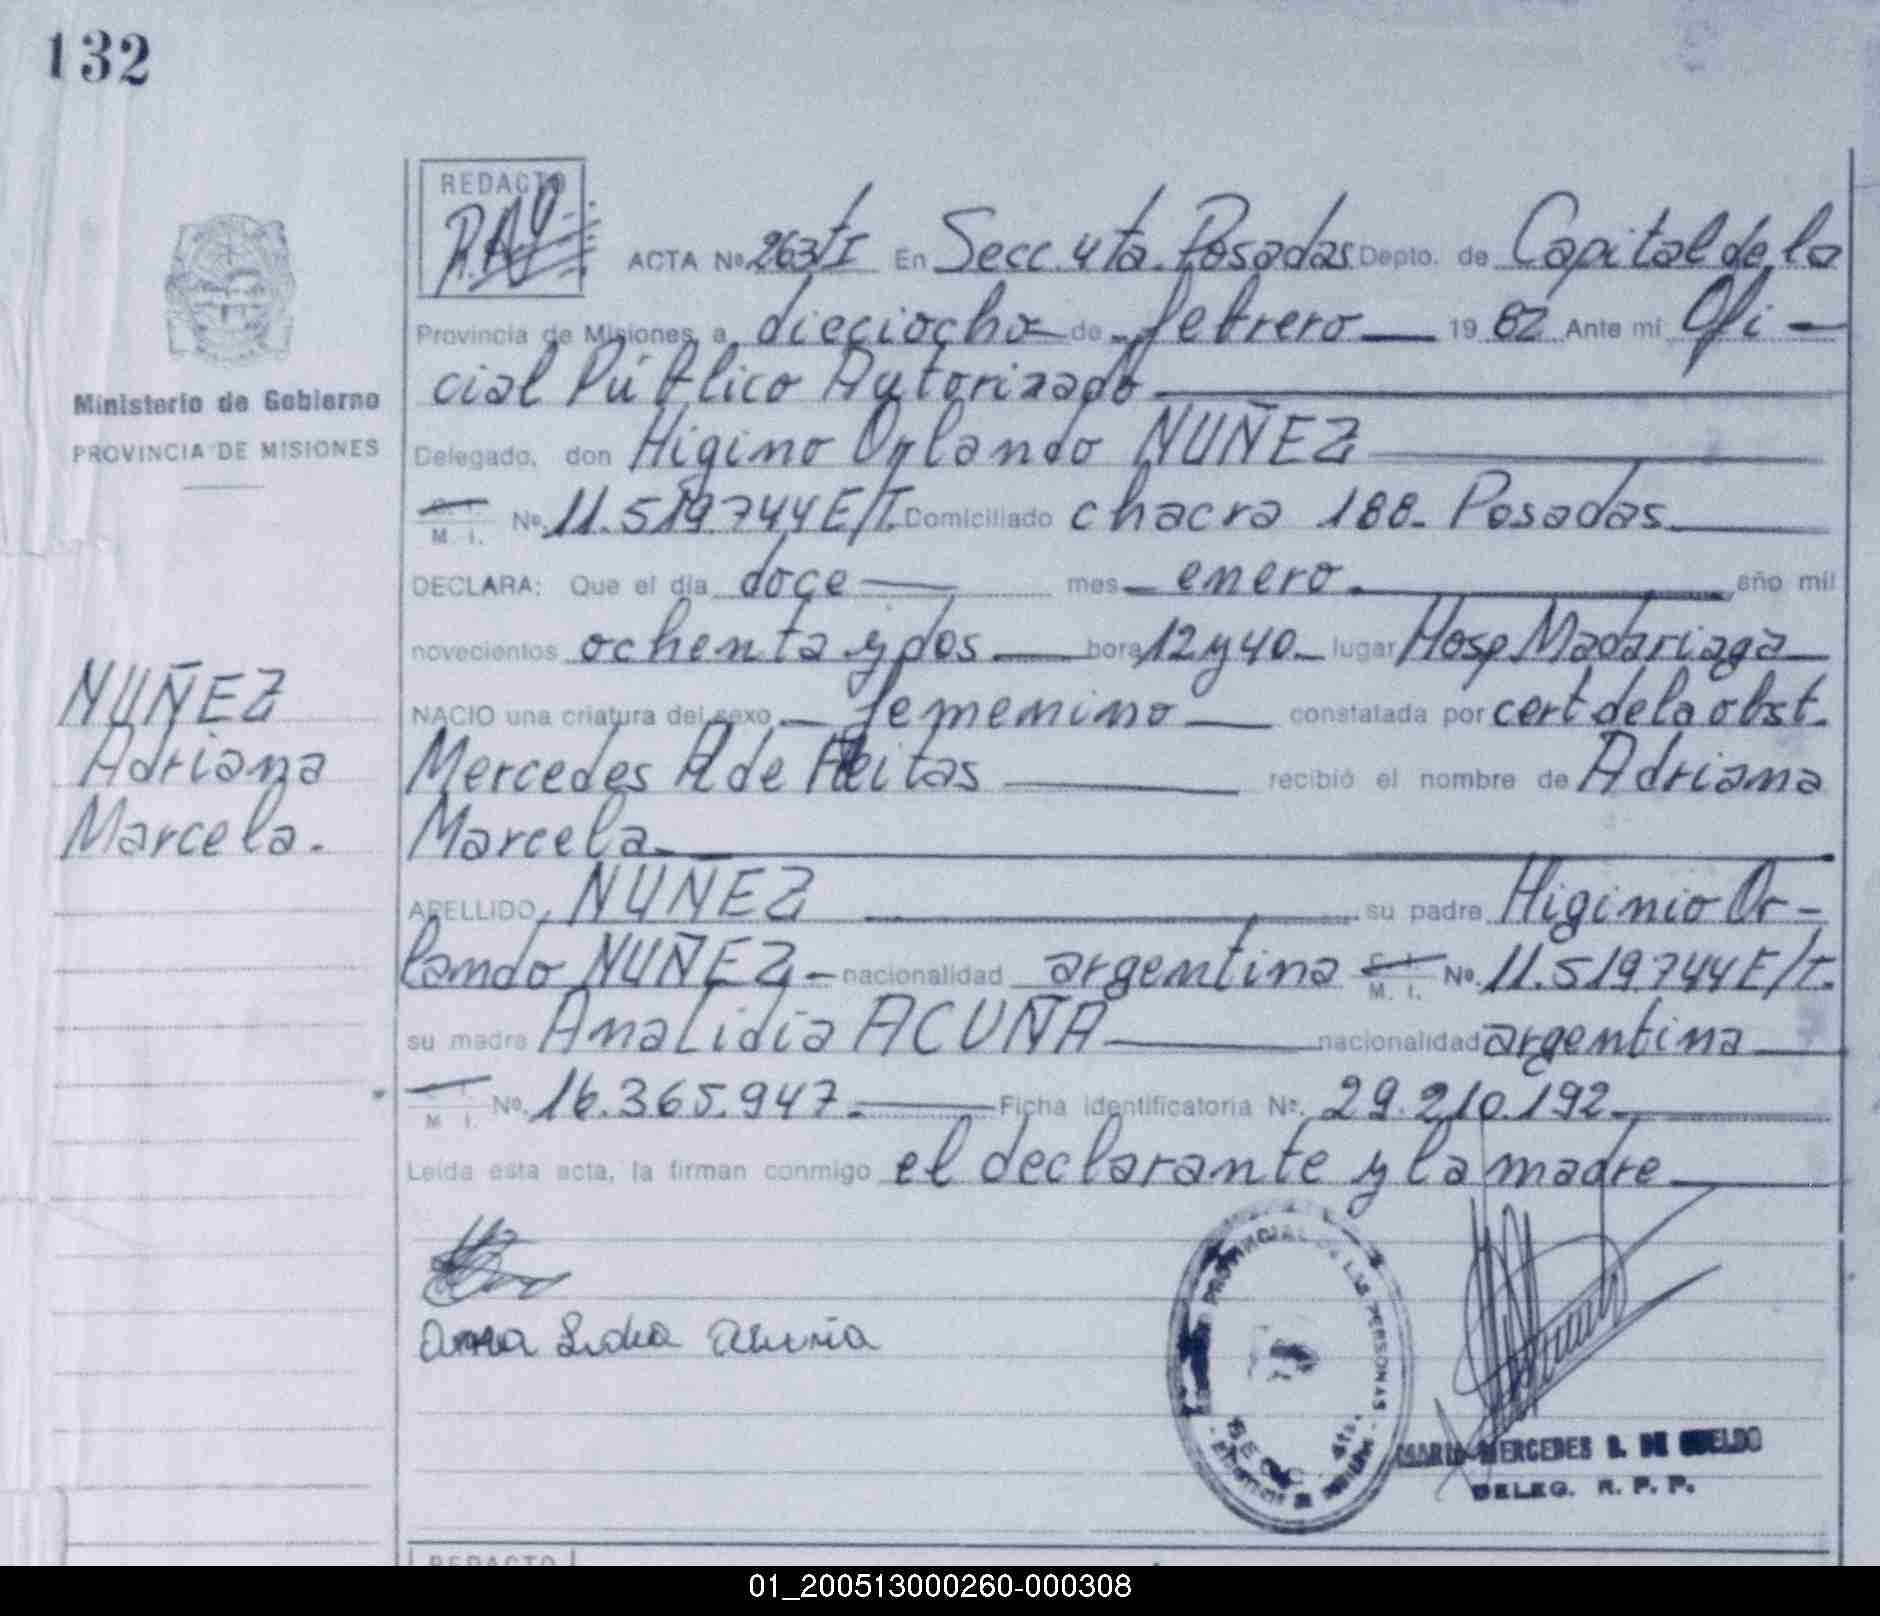 132
REDACTO
ACTA Nº 263/tI En Secc. 4ta. Posadas Depto. de Capital de la
Provincia de Misiones, a dieciocho de febrero 19 82 Ante mí Ofi-
cial Público Autorizado
Ministerio de Gobierno
PROVINCIA DE MISIONES
Delegado, don Higino Orlando NUÑEZ
M. I. Nº 11.519.744 E/T. Domiciliado chacra 188. Posadas
DECLARA: Que el día doce mes enero año mil
novecientos ochenta y dos hora 12 y 40 lugar Hosp Madariaga
NUÑEZ
Adriana
Marcela.
NACIO una criatura del sexo femenino constatada por cert de la obst.
Mercedes A de Freitas recibió el nombre de Adriana
Marcela
APELLIDO, NUNEZ su padre Higinio Or-
lando NUÑEZ nacionalidad argentina M. I. Nº 11.519.744 E/T.
su madre Ana Lidia ACUÑA nacionalidad argentina
M. I. Nº 16.365.947. Ficha identificatoria Nº. 29.210.192
Leída esta acta, la firman conmigo el declarante y la madre
Ana Lidia Acuña
PROVINCIAL DE LAS PERSONAS
SECC. 4ta.
MERCEDES
DELEG. R. P. P.
REDACTO
01_200513000260-000308